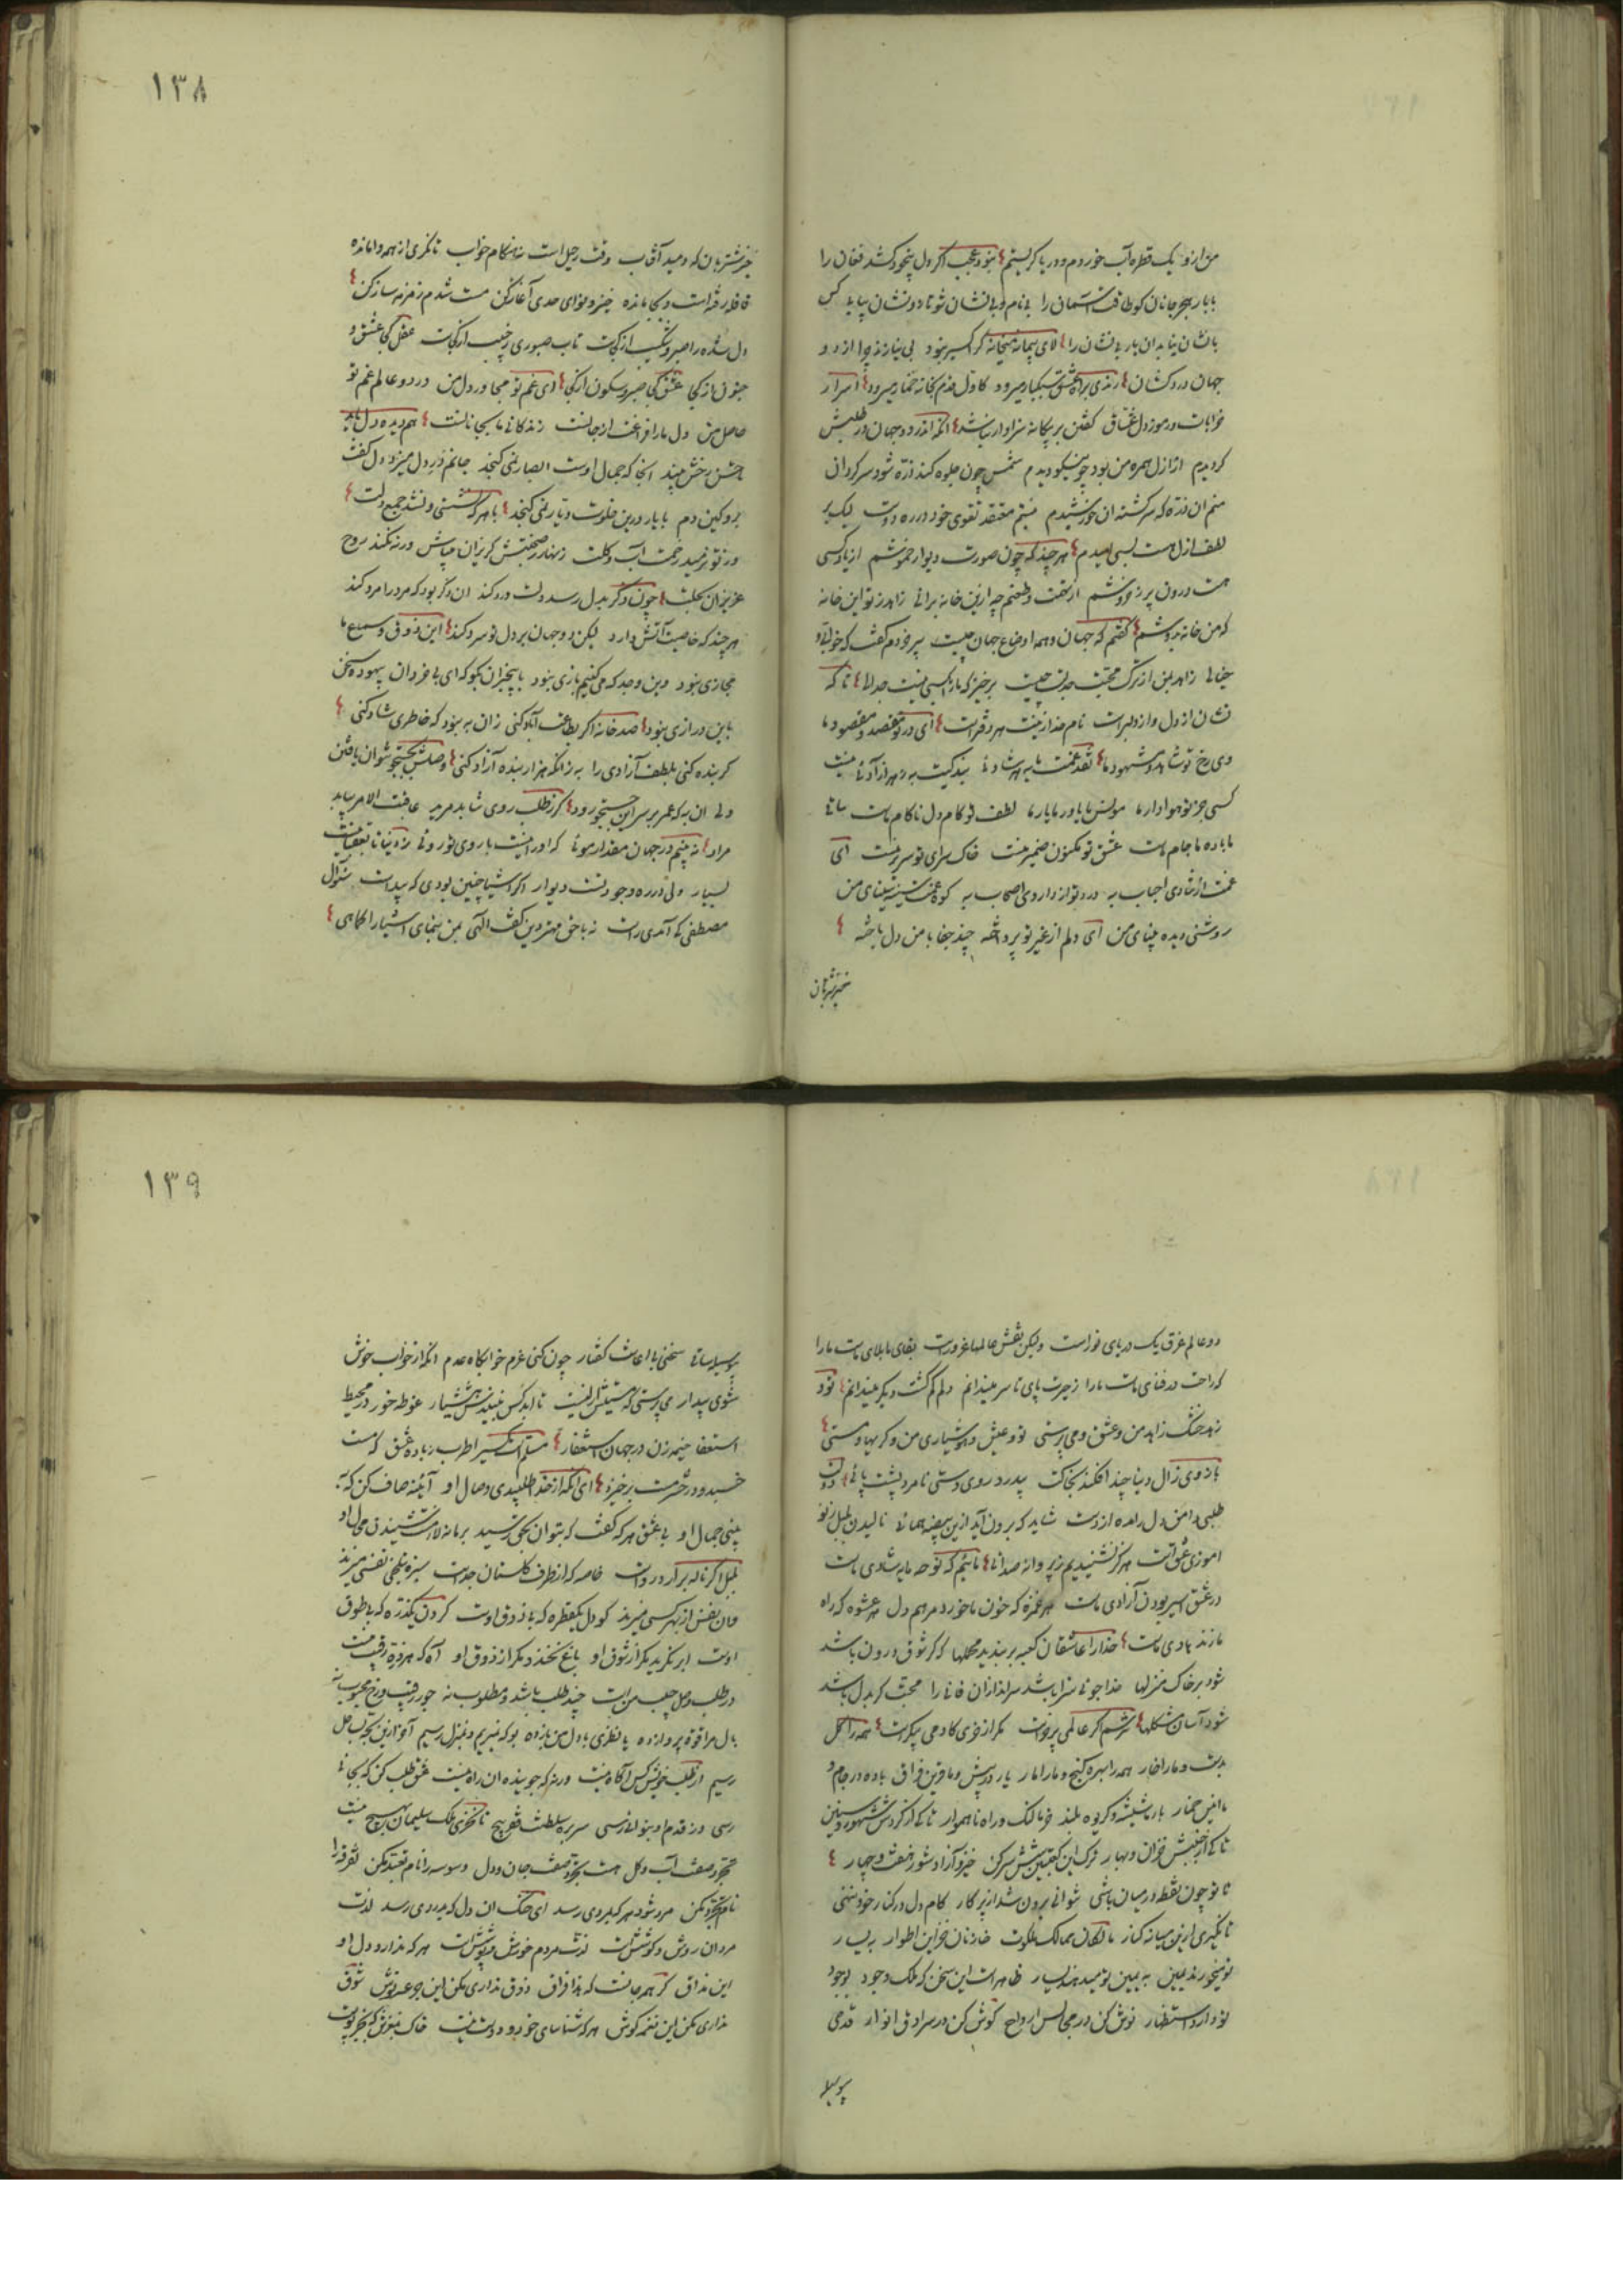 من ازو یک قطره آب خوردم و دریا گریستم نبود عجب اگر دل بیخود کشد فغان را
با بار هجر جانان کو طاقت آسمان را بی نام و بی نشان شو تا دو نشان بیابد کس
با نشان نیابد آن یار بی نشان را لای پیمانه میخانه گر اکسیر نبود بی نیازند چرا از دو
جهان دردکشان رندی براه عشق سبکبار میرود کاول قدم بخانه خمار میرود اسرار
خرابات و رموز دل عشاق گفتن بر بیگانه سزاوار نباشد آنکه اندر دو جهان در طلبش
گردیدم از ازل همره من بود چو نیکو دیدم شمس چون جلوه کند ذره شود سرگردان
منم آن ذره که سرگشته آن خورشیدم نیستم معتقد تقوی خود در ره دوست لیک بر
لطف ازل هست بسی امیدم هر چند که چون صورت دیوار خموشم از یاد کسی
هست درون پر ز خروشم از تخت و طعنم چه ازین خانه برانی زاهد ز تو این خانه
که من خانه بدوشم گفتم که جهان و همه اوضاع جهان چیست پیر خردم گفت که خوابی و
خیالی زاهد بمن از ترک محبت جدلت چیست برخیز که ما را بکسی نیست جدالی تا که
نشان از دل و از دلبر است نام خدا زینت هر دفتر است ای در تو مقصد و مقصود ما
وی رخ تو شاهد و مشهود ما نقد غمت مایه هر شادئی بندگیت به ز هر آزادئی نیست
کسی جز تو هوادار ما مونس ما یاور ما یار ما لطف تو کام دل ناکام ماست ساقی
ما باده ما جام ماست عشق تو مکنون ضمیر منست خاک سرای تو سریر منست ای
غمت از شادی احباب به درد تو از داروی اصحاب به کوه غمت سینه سینای من
روشنی دیده بینای من ای دلم از غیر تو پرداخته چند جفا با من دل باخته
خیز شتربان
١٣٨
خیز شتربان که دمید آفتاب وقت رحیل است نه هنگام خواب تا نگری از همه وامانده
قافله رفته است و بجا مانده خیز و نوای حدی آغاز کن مست شدم زمزمه ساز کن
دل شده را صبر و شکیب از کجاست تاب صبوری ز حبیب از کجاست عقل کجا عشق و
جنون از کجا عشق کجا صبر و سکون از کجا ای غم تو مجاور دل من در دو عالم غم تو
حاصل من دل ما را فراغت از جانست زندگانی ما بجانانست هم دیده دل باید
حسن رخش بیند آنجا که جمال اوست ابصار نمی گنجد جانم در دل میزد دل گفت
برو کین دم با یار درین خلوت دیار نمی گنجد با هر که نشستی و نشد جمع دلت
وز تو نرمید زحمت آب و گلت زنهار ز صحبتش گریزان میباش ورنه نکند روح
عزیزان بحلت چون ذکر بدل رسد دلت درد کند آن ذکر بود که مرد را مرد کند
هر چند که خاصیت آتش دارد لیکن دو جهان بر دل تو سرد کند این ذوق و سماع ما
مجازی نبود وین وجد که می کنیم بازی نبود با بیخبران بگو که ای بی خردان بیهوده سخن
باین درازی نبود صد خانه اگر بطاعت آباد کنی زان به نبود که خاطری شاد کنی
گر بنده کنی بلطف آزادی را به زانکه هزار بنده آزاد کنی وصلش بجستجو نتوان یافتن
ولی آن به که عمر بر سر این جستجو رود گر ز طلب روی نتابد مرید عاقبت الامر بیابد
مراد نه بینم در جهان مقدار موئی که او را نیست با روی تو روئی
بسیار ولی در ره وجود تست دیوار اگر اشیا چنین بودی که پیداست سؤال
مصطفی کی آمدی راست نه با حق مهتر دین گفت الهی بمن بنمای اشیا را کماهی
دو عالم غرق یک دریای نور است ولیکن نقش عالمها غرورست بقای ما بلای ماست ما را
که راحت در فنای ماست ما را ز حیرت پای تا سر میندانم دلم گم گشت دیگر میندانم تو و
زهد خشک زاهد من و عشق و می پرستی تو و عیش و هوشیاری من و گریها و مستی
بازوی زال دنیا چند افکند بخاکت بیدرد روی دستی نامرد پشت پائی
طلبی دامن دل راه ده از دست شاید که برون آید ازین بیضه همائی نالیدن بلبل ز نو
آموزی عشق است هرگز نشنیدیم ز پروانه صدائی مائیم که نوحه مایه شادی ماست
در عشق اسیر بودن آزادی ماست هر غمزه که خون ما خورد مرهم دل هر عشوه که راه
ما زند هادی ماست خدا را عاشقان کعبه بربندید محملها که گر شوق درون باشد
شود بر خاک منزلها خدا جوئی سزا باشد سراندازان فانی را محبت گر بدل باشد
شود آسان مشکلها سرشم گر عالمی پر خواست مگر از خوی کا و می بیکراست همه را گل
بدست و ما را خار همه را بهره گنج و ما را مار یار در پیش و ما قرین فراق باده در جام و
ما انیس خمار بار ما شیشه و گریوه بلند خر ما لنگ و راه ناهموار تا کی از گردش شهور و سنین
تا کی از جنبش خزان و بهار ترک این کعبتین شش سر کن خیز و آزاد شو ز هفت و چهار
تا تو چون نقطه در میان باشی نتوانی برون شد از پرگار کام دل در کنار خود ننهی
تا نگیری ازین میانه کنار مالکان ممالک ملکوت خازنان خزاین اطوار به یسار
تو میخورند یمین به یمین تو میدهند یسار ظاهر است این سخن که ملک وجود بوجود
تو دارد استظهار نوش کن در مجالس ارواح گوش کن در سرادق انوار قدحی
بوسیله
١٣٩
بوسیله ساقی سخنی با اعانت گفتار چون کنی عزم خوابگاه عدم مگر از خواب خوش
شوی بیدار می پرستی که مستیش ازلیست تا ابد کس نبیندش هشیار غوطه خور در محیط
استغفا خیمه زن در جهان استغفار مستم ساز اطرب زباده عشق که مست
خسبد و در حشر مست برخیزد ای آنکه از خدا طلبیدی وصال او آیینه صاف کن که
بینی جمال او با عشق هر که گفت که نتوان بحق رسید بر ما نه لازمست شنیدن محال او
بلبل اگر ناله برآرد رواست خاصه که از طرف گلستان جداست سبزه بتلخی نفسی میزند
وان نفس از بهر کسی میزند کو دل یکقطره که با ذوق اوست گردن یکذره که بی طوق
اوست ابر نگرید مگر از شوق او باغ نخندد مگر از ذوق او آه که هر ذره رقیب منست
در طلب وصل حبیب من است چند طلب باشد و مطلوب نه جور رقیب و رخ محبوب نه
بال مرا قوت پرواز ده یا نظری با دل من باز ده بو که بمیریم و بمنزل رسیم آخر ازین لجه بساحل
رسیم از طلب خویش کس آگاه نیست ورنه که جوینده آن راه نیست عشق طلب کن که بجائی
رسی وز قدم او بنوائی رسی سریر سلطنت فقر هیچ تا نخری ملک سلیمان بهیچ نیست
تجرد صفت آب و گل هست تجرد صفت جان و دل وسوسه را نام تعبد مکن تفرقه را
نام تجرد مکن مرد شود هر که بمردی رسد ای خنک آن دل که بدردی رسد لذت
مردان روش و کوشش است لذت مردم خورش و پوشش است هر که ندارد دل او
این مذاق گر همه جانست که بادا فراق ذوق نداری مکن این جرعه نوش شوق
نداری مکن این نغمه گوش هر که شناسای خود و دوست نیست